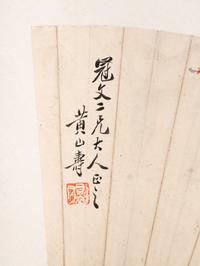 冠文二兄大人正之
黄山壽